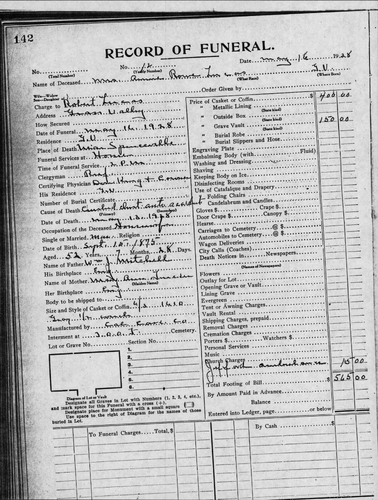 142
RECORD OF FUNERAL.
No. No. 12 Date, May 16 1928
(Total Number) (Yearly Number)
Name of Deceased, Mrs. Annie
(Race) (Where Born)
Order Given by
Charge to Robert
Address, Grass Valley
How Secured,
Date of Funeral, May 16, 1928
Residence, G.V.
Place of Death,
Funeral Services at
Time of Funeral Service,
Clergyman,
Certifying Physician,
His Residence,
Number of Burial Certificate
Cause of Death,
Date of Death, May 13 1928
Occupation of the Deceased, Housewife
Single or Married, Mar. Religion
Date of Birth, Sept. 15, 1875
Aged, 52 Years, Months, 28 Days.
Name of Father, Wm J. Mitchell
His Birthplace, Eng
Name of Mother, Mary Ann
Her Birthplace, Eng (Maiden Name)
Body to be shipped to
Size and Style of Casket or Coffin,
Manufactured by
Interment at I.O.O.F. Cemetery.
Lot or Grave No. Section No.
Diagram of Lot or Vault
Designate all Graves in Lot with Numbers (1, 2, 3, 4, etc.),
and mark space for this Funeral with a cross (+).
Designate place for Monument with a small square
Use space to the right of Diagram for the names of those
buried in Lot.
Price of Casket or Coffin 400 00
" Metallic Lining
" Outside Box
" Grave Vault 150 00
" Burial Robe
" Burial Slippers and Hose
Engraving Plate
Embalming Body (with Fluid)
Washing and Dressing
Shaving
Keeping Body on Ice
Disinfecting Rooms
Use of Catafalque and Drapery
" Folding Chairs
" Candelabrum and Candles
Gloves $ Crape $
Door Crape $ Canopy $
Hearse
Carriages to Cemetery @ $
Automobiles to Cemetery @ $
Wagon Deliveries
City Calls (Coaches)
Death Notices in Newspapers.
(Names of Newspapers)
Flowers
Outlay for Lot
Opening Grave or Vault
Lining Grave
Evergreen
Tent or Awning Charges
Vault Rental
Shipping Charges, prepaid
Removal Charges
Cremation Charges
Porters $ Watchers $
Personal Services
Music
Church Charges
ambulance 15 00
Total Footing of Bill 565 00
By Amount Paid in Advance
Balance
Entered into Ledger, page or below
To Funeral Charges Total, $
By Cash $